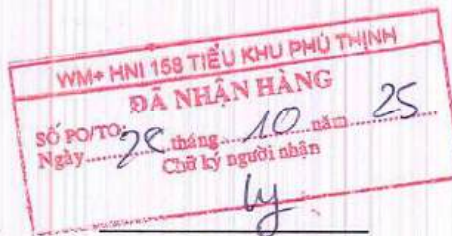 WM+ HNI 158 TIỂU KHU PHÚ THỊNH
ĐÃ NHẬN HÀNG
SỐ PO/TO:
Ngày 28 tháng 10 năm 25
Chữ ký người nhận
ly